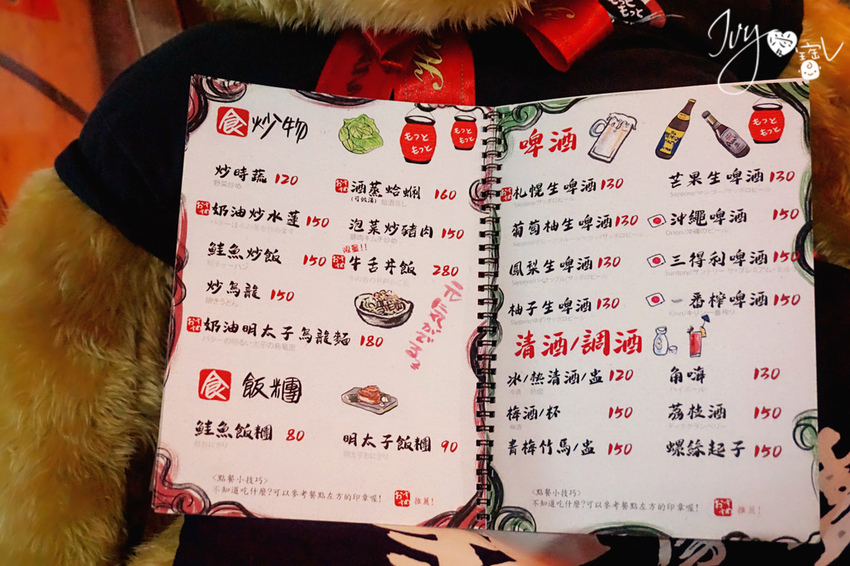 Ivy
食 炒物
もっともっと
もっともっと
炒時蔬 120
野菜炒め
酒蒸蛤蜊 160
奶油炒水蓮 150
泡菜炒豬肉 150
豚肉キムチ炒め
鮭魚炒飯 150
牛舌丼飯 280
炒烏龍 150
焼きうどん
奶油明太子烏龍麵 180
食 飯糰
鮭魚飯糰 80
明太子飯糰 90
<點餐小技巧>
不知道吃什麼?可以參考餐點左方的印章喔!
推薦!
啤酒
もっともっと
札幌生啤酒 130
芒果生啤酒 130
葡萄柚生啤酒 130
沖繩啤酒 150
鳳梨生啤酒 130
三得利啤酒 150
柚子生啤酒 130
一番榨啤酒 150
清酒/調酒
冰/熱清酒/盅 120
角嗨 130
梅酒/杯 150
荔枝酒 150
青梅竹馬/盅 150
螺絲起子 150
<點餐小技巧>
不知道吃什麼?可以參考餐點左方的印章喔!
推薦!